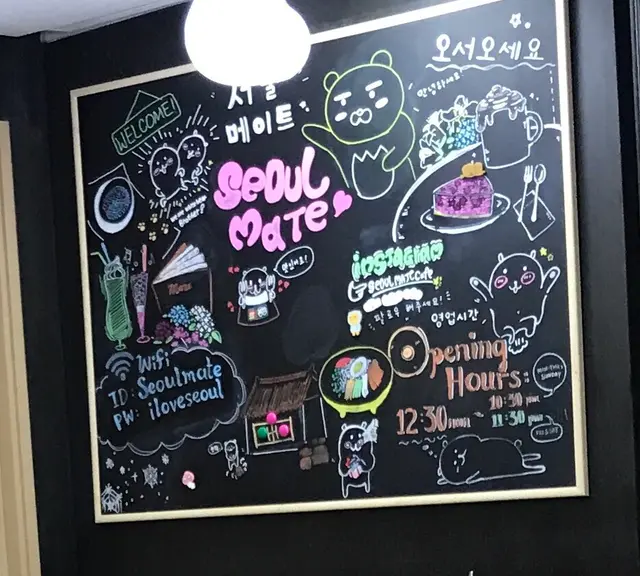 WELCOME!
서울
메이트
Seoul
Mate
오서오세요
안녕하세요
Menu
맛있어요!
instagram
@seoul.mate.cafe
팔로우 해주세요!
영업시간
Opening
Hours:
12:30
10:30
11:30
Wifi
ID: Seoulmate
PW: iloveseoul